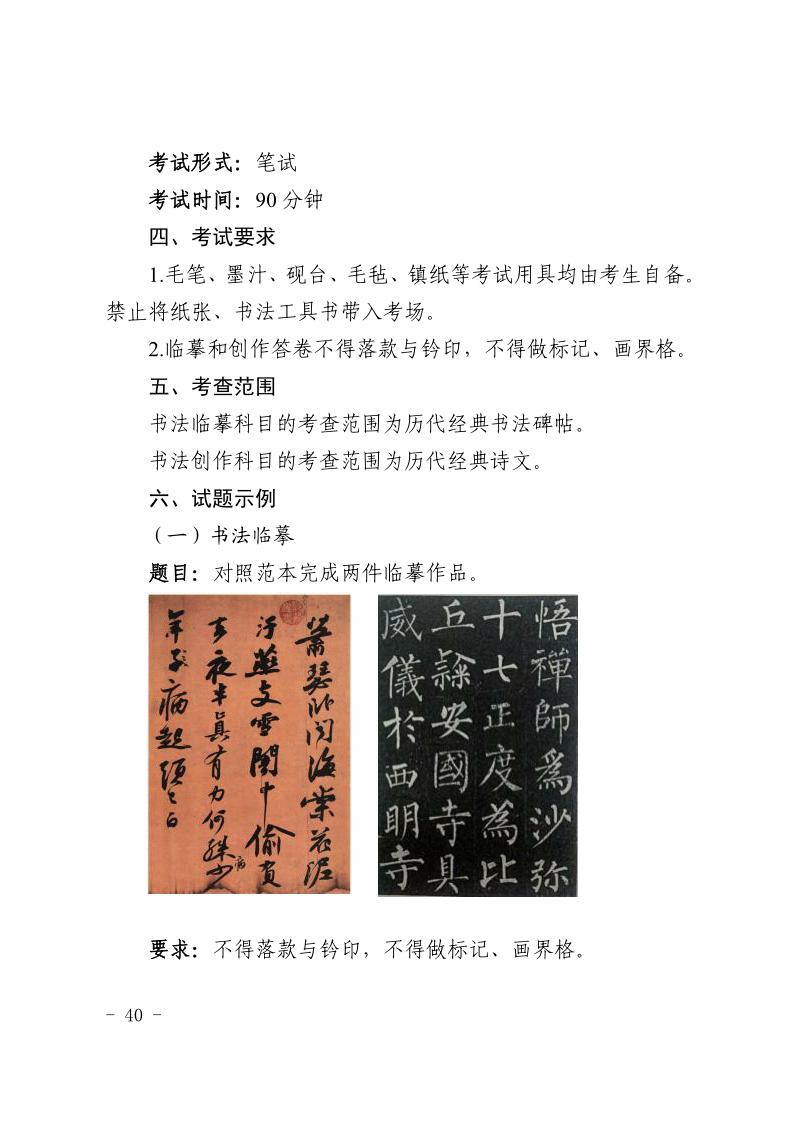 考试形式：笔试
考试时间：90 分钟
四、考试要求
1.毛笔、墨汁、砚台、毛毡、镇纸等考试用具均由考生自备。
禁止将纸张、书法工具书带入考场。
2.临摹和创作答卷不得落款与钤印，不得做标记、画界格。
五、考查范围
书法临摹科目的考查范围为历代经典书法碑帖。
书法创作科目的考查范围为历代经典诗文。
六、试题示例
（一）书法临摹
题目：对照范本完成两件临摹作品。
萧瑟卧闻海棠花泥
汙燕支雪闇中偷負
去夜半真有力何殊少
年子病起頭已白
病
悟禪師為沙弥
十七正度為比
丘隸安國寺具
威儀於西明寺
要求：不得落款与钤印，不得做标记、画界格。
- 40 -